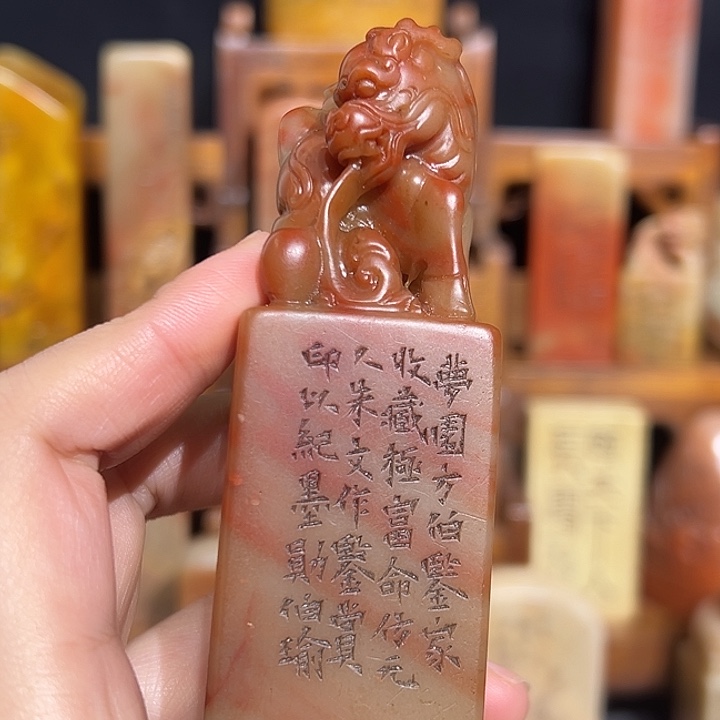 夢園方伯鑒家
收藏極富命仿元
人朱文作鑒賞
印以紀墨剧伯瑜